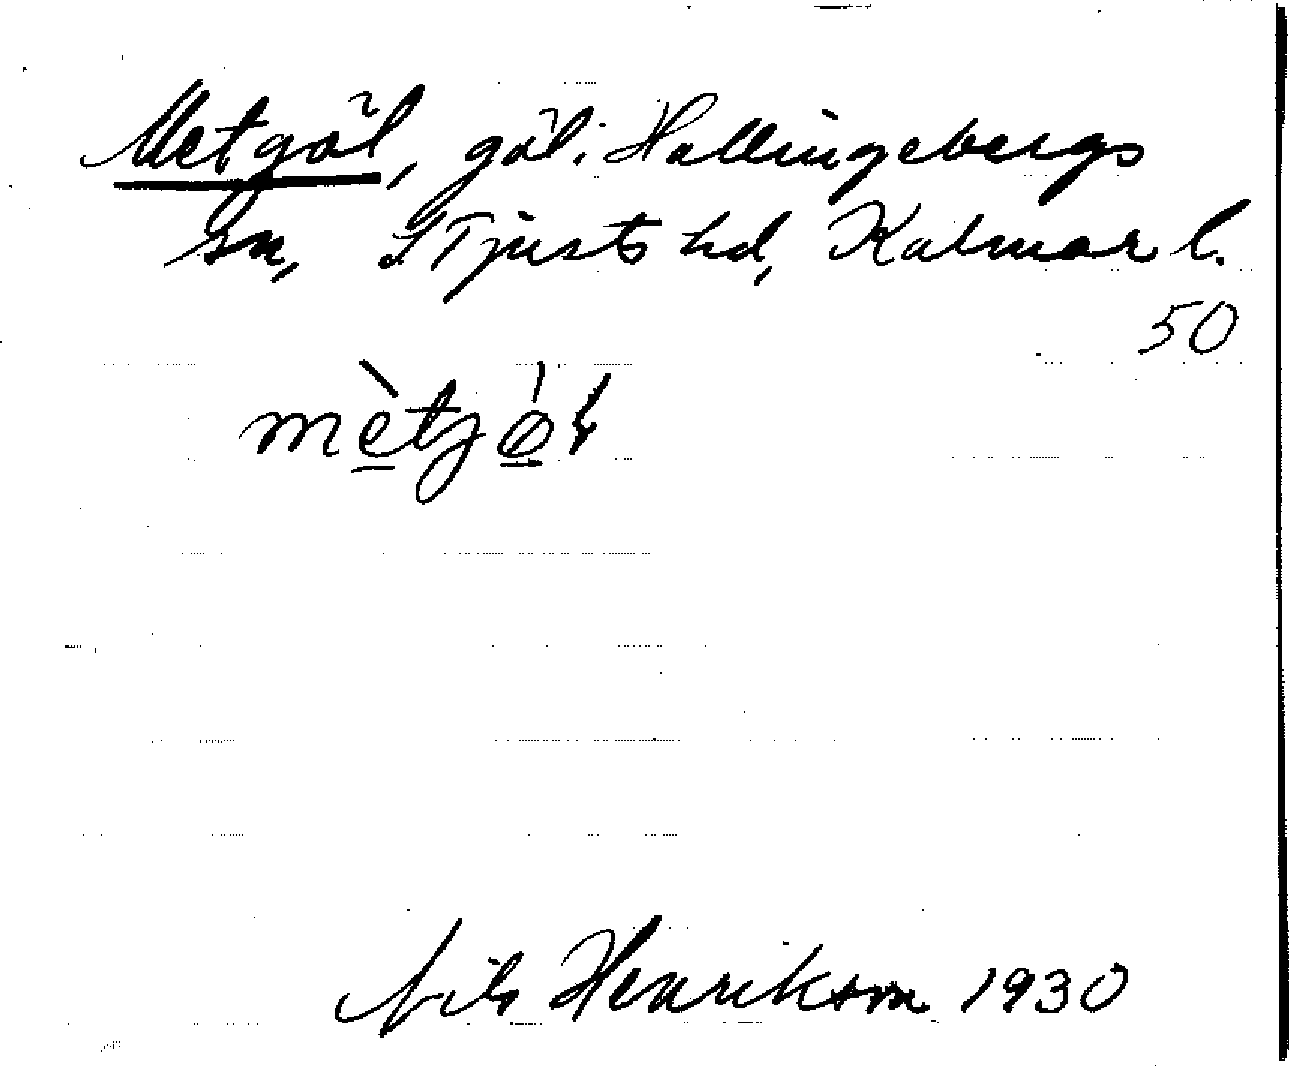 Metgöl, göl. Hallingebergs
sn, S Tjusts hd, Kalmar l.
50
mètjø̀ɫ
Nils Henrikson 1930